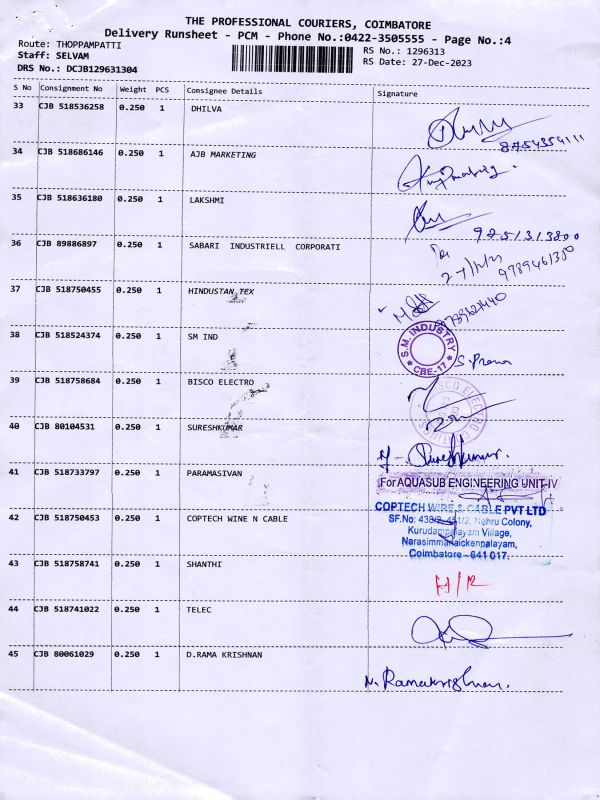 THE PROFESSIONAL COURIERS, COIMBATORE
Delivery Runsheet - PCM - Phone No.:0422-3505555 - Page No.:4
Route: THOPPAMPATTI RS No.: 1296313
Staff: SELVAM RS Date: 27-Dec-2023
DRS No.: DCJB129631304
S No Consignment No Weight PCS Consignee Details Signature
33 CJB 518536258 0.250 1 DHILVA
8754354111
34 CJB 518686146 0.250 1 AJB MARKETING
35 CJB 518636180 0.250 1 LAKSHMI
9751313800
36 CJB 89886897 0.250 1 SABARI INDUSTRIELL CORPORATI
27/12/23
37 CJB 518750455 0.250 1 HINDUSTAN TEX
38 CJB 518524374 0.250 1 SM IND
S.M. INDUSTRY
CBE-17
39 CJB 518758684 0.250 1 BISCO ELECTRO
40 CJB 80104531 0.250 1 SURESHKUMAR
Sureshkumar.
41 CJB 518733797 0.250 1 PARAMASIVAN
For AQUASUB ENGINEERING UNIT-IV
42 CJB 518750453 0.250 1 COPTECH WINE N CABLE
COPTECH WIRE & CABLE PVT LTD
SF.No: 451/2, Nehru Colony,
Kurudampalayam Village,
Narasimmanaickenpalayam,
Coimbatore - 641 017.
43 CJB 518758741 0.250 1 SHANTHI
44 CJB 518741022 0.250 1 TELEC
45 CJB 80061029 0.250 1 D.RAMA KRISHNAN
N. Ramakrishnan.